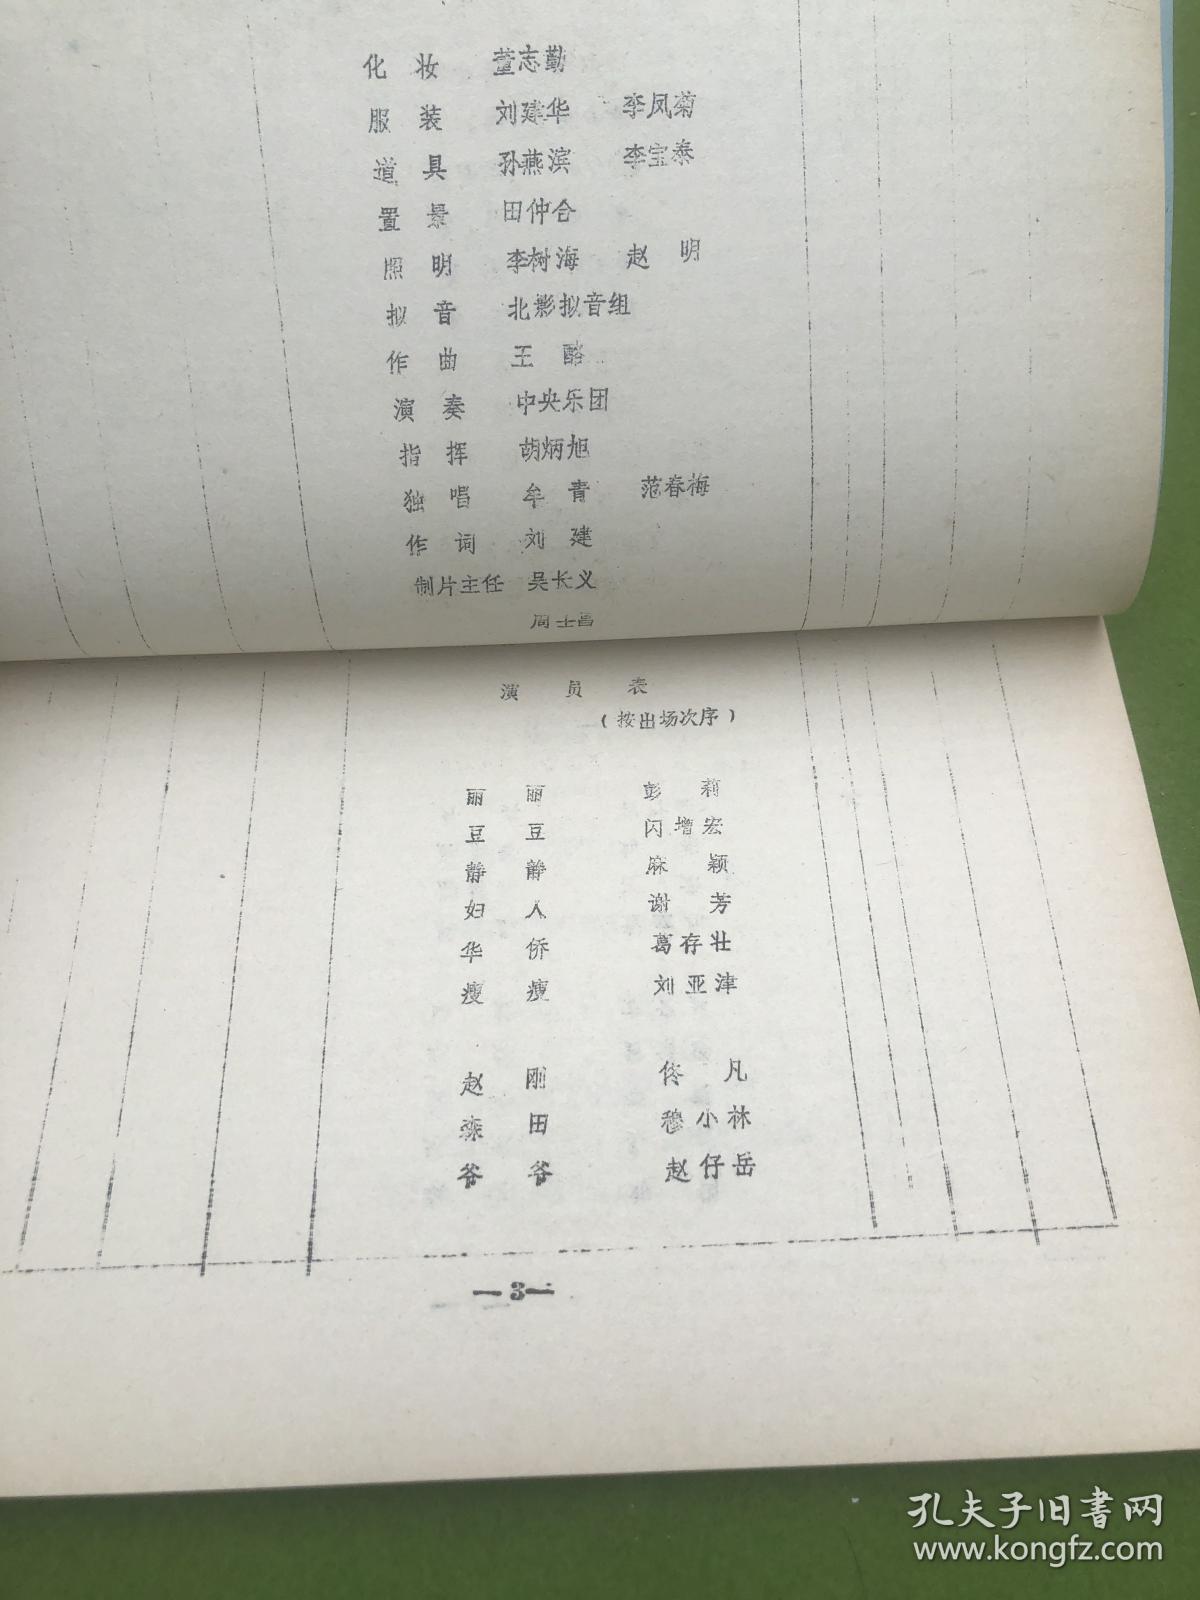 化妆 董志勤
服装 刘建华 李凤菊
道具 孙燕滨 李宝泰
置景 田仲合
照明 李树海 赵明
拟音 北影拟音组
作曲 王酩
演奏 中央乐团
指挥 胡炳旭
独唱 牟青 范春梅
作词 刘建
制片主任 吴长义
周士昌
演员表
(按出场次序)
丽丽 彭莉
豆豆 闪增宏
静静 麻颖
妇人 谢芳
华侨 葛存壮
瘦瘦 刘亚津
赵刚 佟凡
森田 穆小林
爷爷 赵仔岳
—3—
孔夫子旧书网
www.kongfz.com